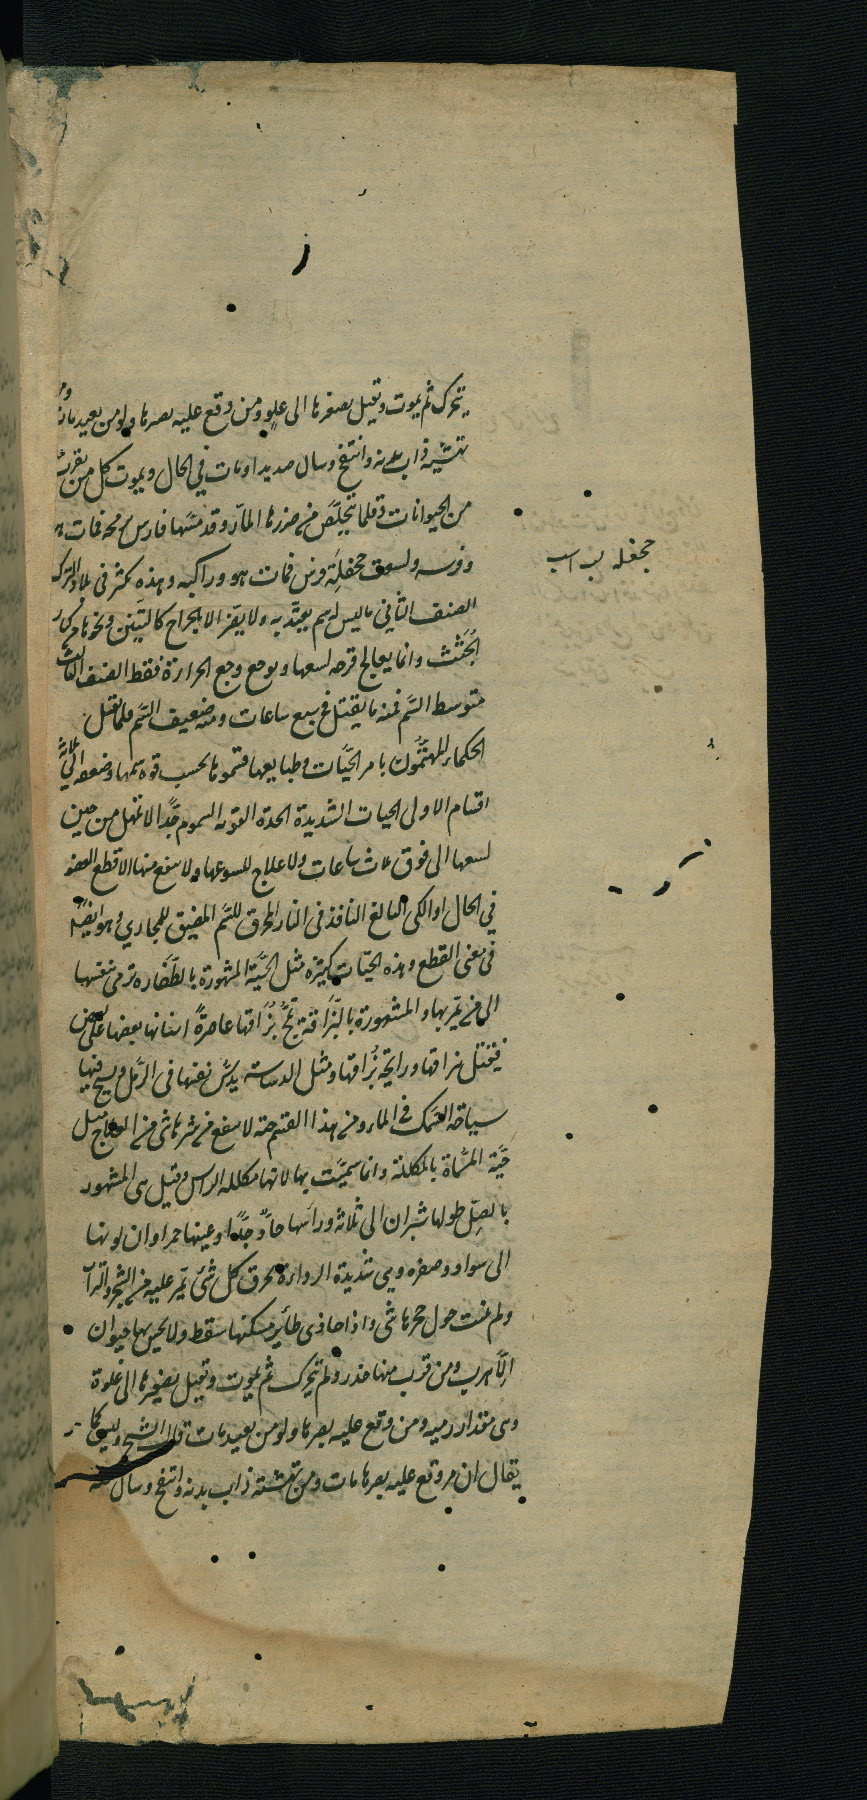 يتحرك ثم يموت وقيل بصفرها الى علو ومن وقع عليه بصرها ولو من بعيد مات ومن
نهشته ذاب بدنه وانتفخ وسال صديدا ومات في الحال ويموت كل من يقرب
من الحيوانات وقلما يتخلص من ضررها المار وقد مسها فارس برمحه فمات هو
وفرسه ولسعت جحفلة فرس فمات هو وراكبه وهذه تكثر في بلاد الترك
الصنف الثاني ما ليس له سم يعتد به ولا يضر الا بجراح كالتنين ونحوها من كبار
الجثث وانما يعالج قرحه لسعها ووجع وجع الحرارة فقط الصنف الثالث
متوسط السم فمنه ما يقتل في سبع ساعات ومنه ضعيف السم قلما يقتل
الحكماء المهتمون بامر الحيات وطبايعها قسموها بحسب قوه سمها وضعفه الى ثلاثة
اقسام الاول الحيات الشديدة الحدة القوية السموم جدا لا تمهل من حين
لسعها الى فوق ثلاث ساعات ولا علاج للسوعها ولا ينفع منها الا قطع العضو
في الحال او الكي البالغ النافذ في النار المحرق للسم المضيق للمجاري وهو ايضا
في معنى القطع وهذه الحيات كثيرة مثل الحية المشهورة بالطفاره ترمي نفسها
الى من يمر بها والمشهورة بالبزاقة تمج بزاقها عاصرة اسنانها بعضها على بعض
فيقتل بزاقها ورايحة بزاقها ومثل الدساسة يدس نفسها في الرمل ويسبح فيها
سياحة السمك في الماء ومن هذا القسم حية لا ينفع من شرها شي من العلاج مثل
حية المسماة بالمكللة وانما سميت بها لانها مكللة الراس وقيل هي المشهور
بالصل طولها شبران الى ثلاثة وراسها حاد جدا وعينها حمراوان لونها
الى سواد وصفره وهي شديدة الرداءة يحرق كل شئ يمر عليه من الشجر والتراب
ولم ينبت حول جحرها شي واذا حاذى طائر مسكنها سقط ولا يحس بها حيوان
الا هرب ومن قرب منها خدر ولم يتحرك ثم يموت وقيل بصفيرها الى غلوة
وهي مقدار رميه ومن وقع عليه بصرها ولو من بعيد مات قال الشيخ وليس كما
يقال ان من وقع عليه بصرها مات ومن نهشته ذاب بدنه وانتفخ وسال منه
جحفله لب اسب